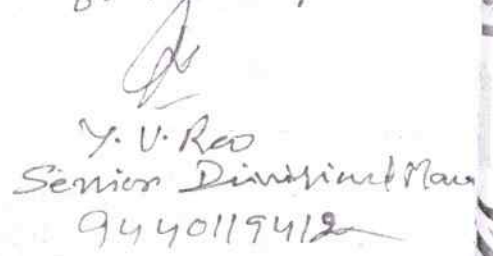 Y. V. Rao
Senior Divisional Mana
9440119412